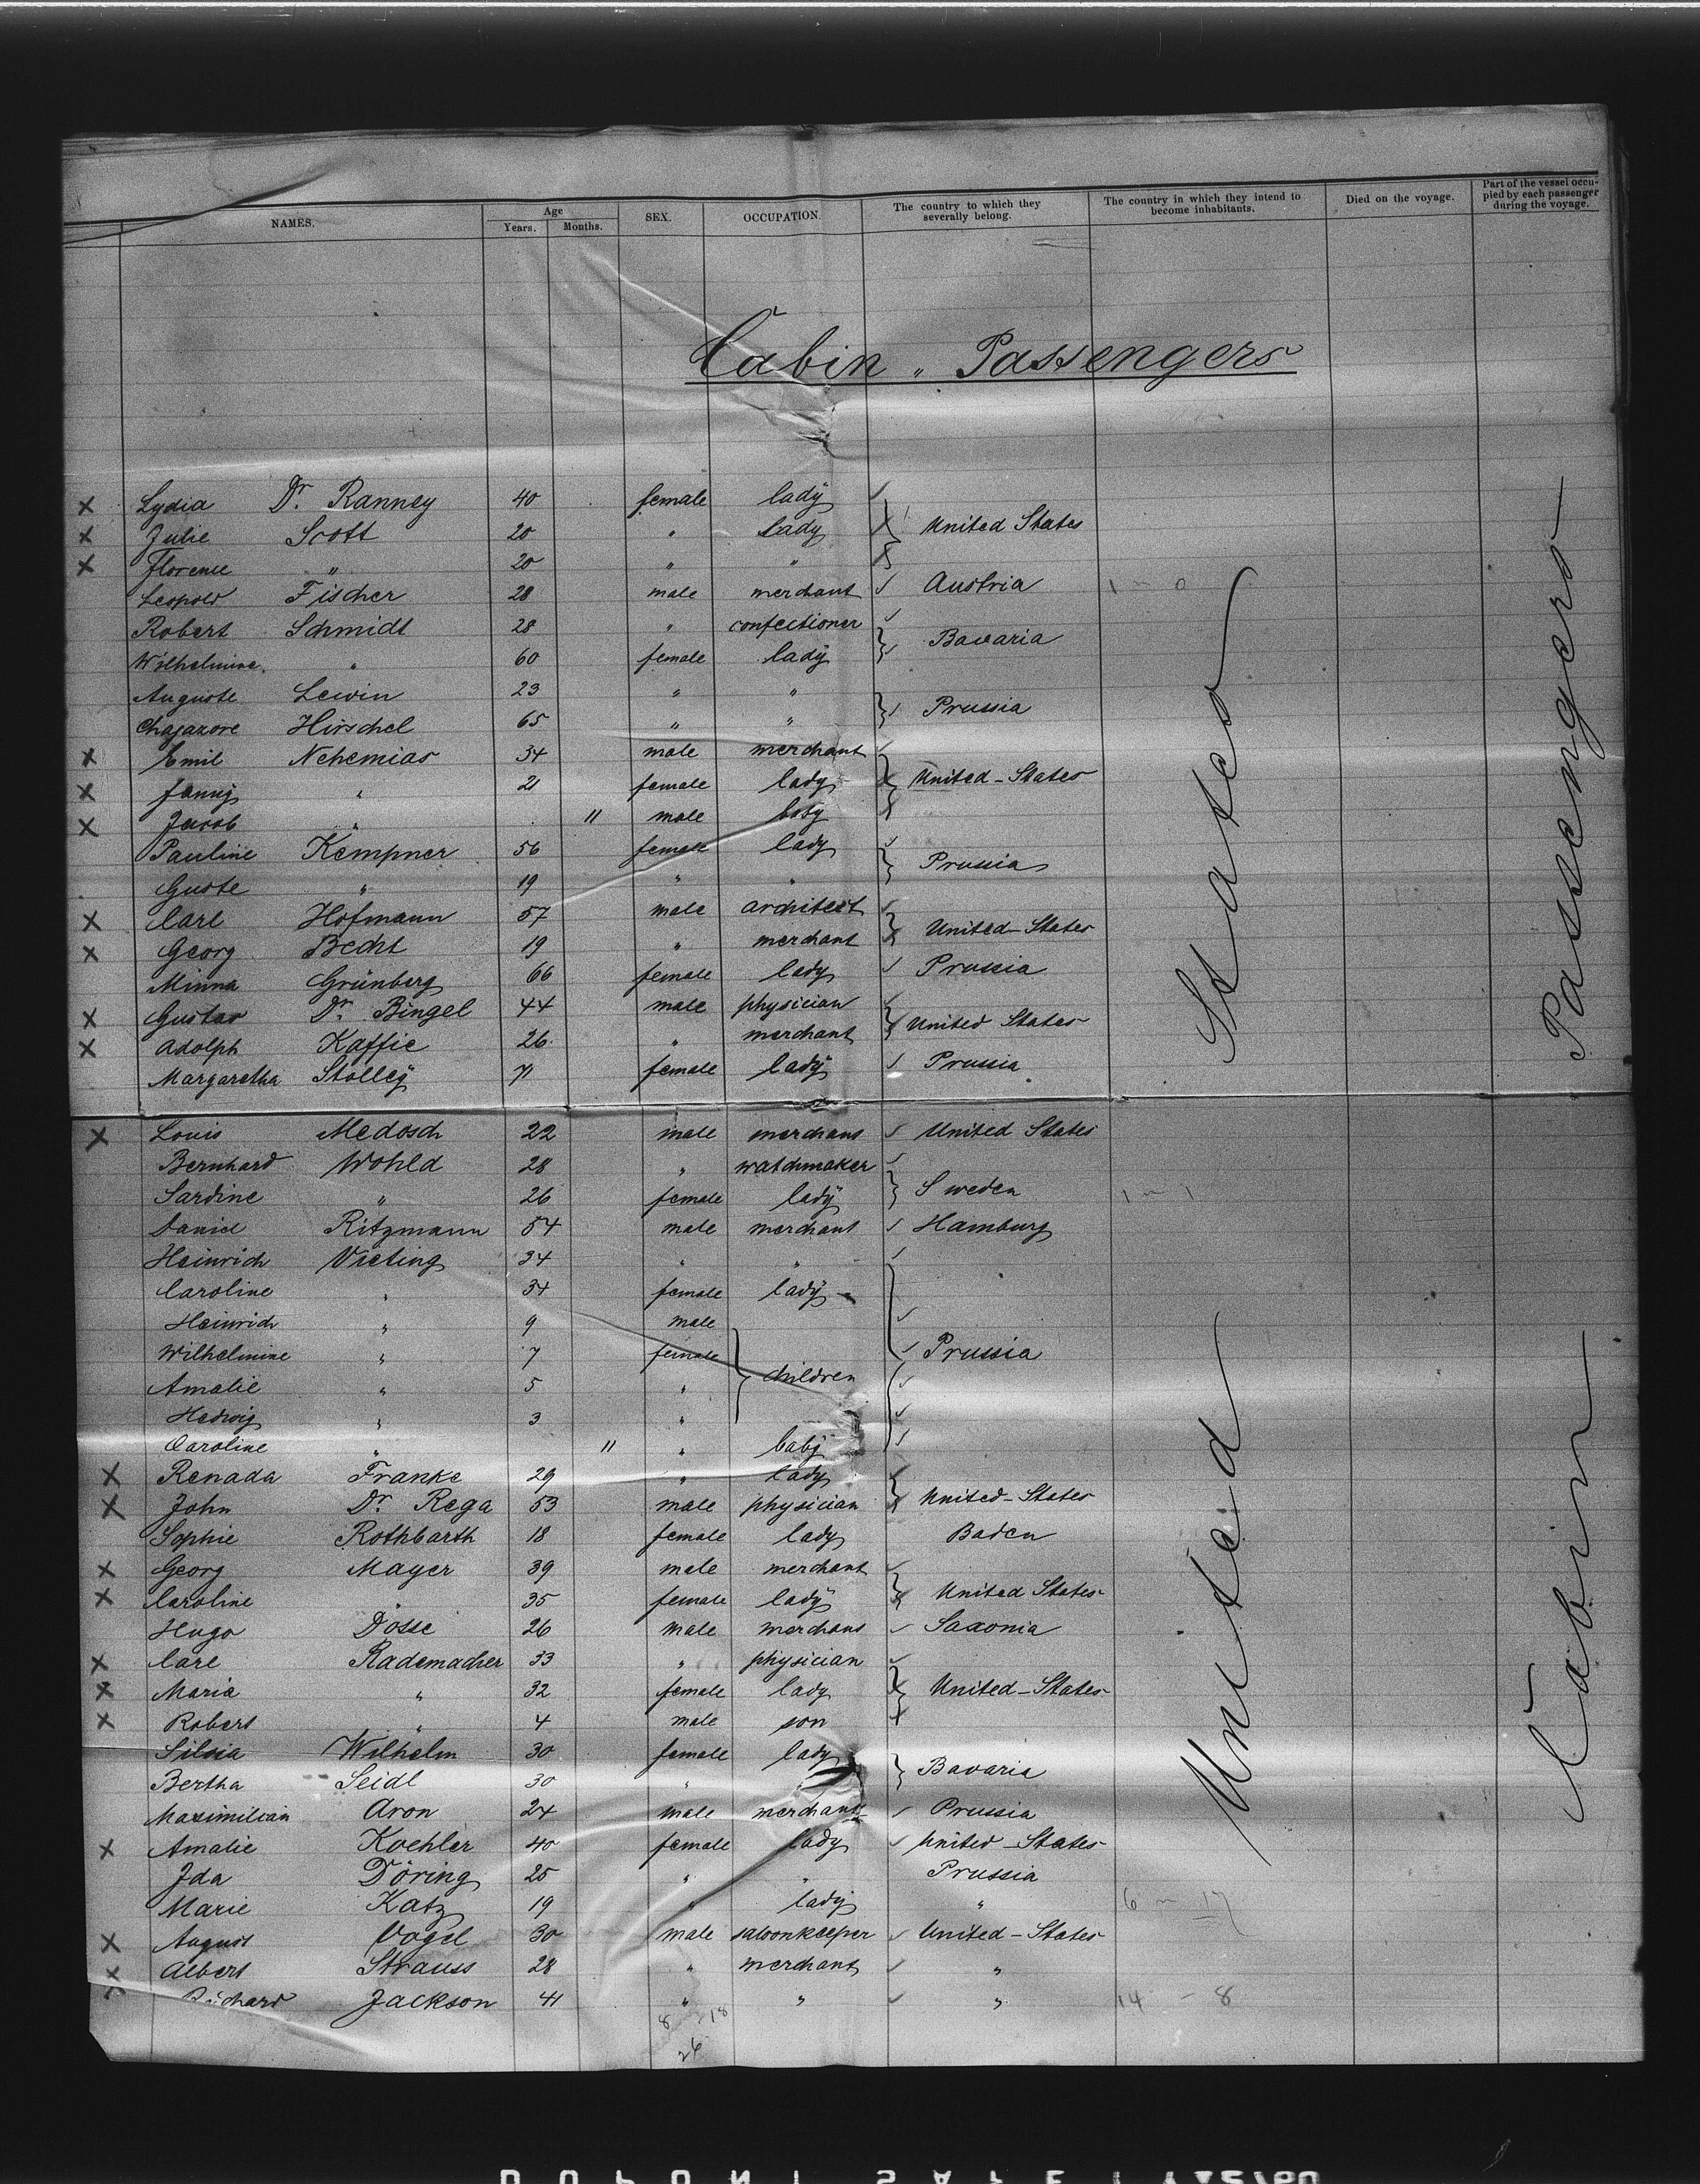 NAMES. Age Years. Months. SEX. OCCUPATION. The country to which they severally belong. The country in which they intend to become inhabitants. Died on the voyage. Part of the vessel occupied by each passenger during the voyage.
Cabin „ Passengers
X Lydia Dr. Ranney 40 female lady
X Julie Scott 20 " lady United States
X Florence " 20 " "
Leopold Fischer 28 male merchant Austria 1 — 0
Robert Schmidt 28 " confectioner
Wilhelmine " 60 female lady Bavaria
Auguste Lewin 23 " "
Hirschel 65 " " Prussia
X Emil Nehemias 34 male merchant
X Fanny " 21 female lady United-States
X Jacob " 11 male
Pauline Kempner 56 female lady
Guste " 19 " " Prussia
X Carl Hofmann 57 male architect
X Georg Becht 19 " merchant United-States
Minna Grünberg 66 female lady Prussia
X Gustav Dr. Bingel 44 male physician
X Adolph Kaffie 26 " merchant United States
Margaretha Stolley 71 female lady Prussia
X Louis Medosch 22 male merchant United States
Bernhard Wohld 28 " watchmaker
Sardine " 26 female lady Sweden 1 — 1
Daniel Ritzmann 54 male merchant Hamburg
Heinrich Vieting 34 " "
Caroline " 34 female lady
Heinrich " 9 male
Wilhelmine " 7 female Prussia
Amalie " 5 " children
Hedwig " 3 "
Caroline " 11 " baby
X Renada Franke 29 " lady
X John Dr. Rega 53 male physician United-States
Sophie Rothbarth 18 female lady Baden
X Georg Mayer 39 male merchant
X Caroline " 35 female lady United States
Hugo Dosse 26 male merchant Saxonia
X Carl Rademacher 33 " physician
X Maria " 32 female lady United-States
X Robert " 4 male son
Silvia Wilhelm 30 female lady
Bertha Seidl 30 " " Bavaria
Maximilian Aron 24 male merchant Prussia
X Amalie Koehler 40 female lady United-States
Ida Döring 25 " " Prussia
Marie Katz 19 " lady " 6 — 17
X August Vogel 30 male saloonkeeper United-States
X Albert Strauss 28 " merchant "
X Richard Jackson 41 " " " 14 - 8
8 18
26
United States
Cabin Passengers